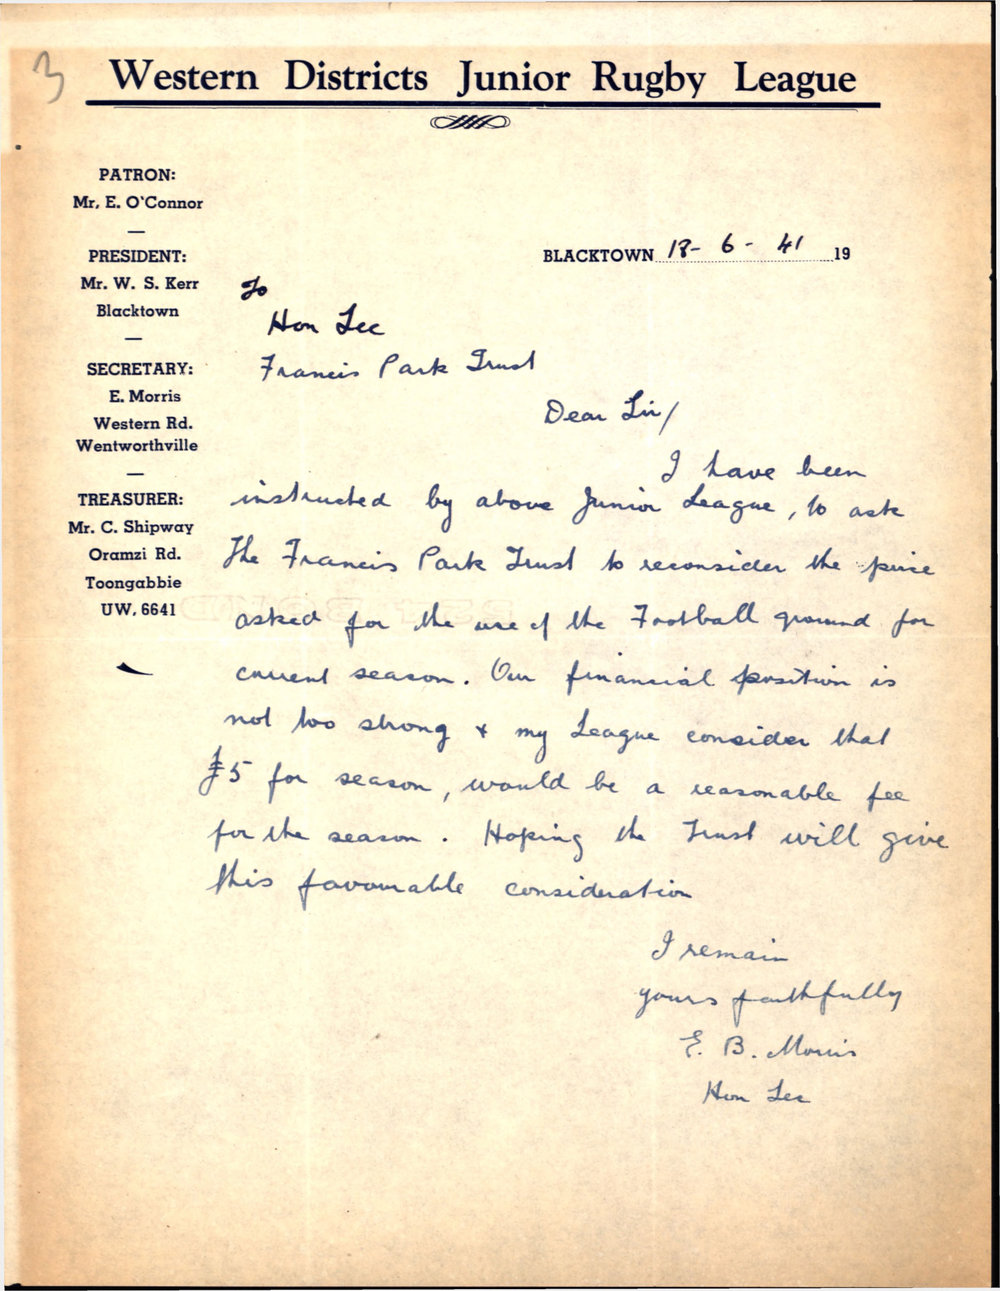 3
Western Districts Junior Rugby League
PATRON:
Mr. E. O'Connor
PRESIDENT:
Mr. W. S. Kerr
Blacktown
SECRETARY:
E. Morris
Western Rd.
Wentworthville
TREASURER:
Mr. C. Shipway
Oramzi Rd.
Toongabbie
UW. 6641
BLACKTOWN 18-6-41 19
To
Hon Sec
Francis Park Trust
Dear Sir/
I have been
instructed by above Junior League, to ask
The Francis Park Trust to reconsider the price
asked for the use of the Football ground for
current season. Our financial position is
not too strong & my League consider that
£5 for season, would be a reasonable fee
for the season. Hoping the Trust will give
this favourable consideration
I remain
yours faithfully
E. B. Morris
Hon Sec